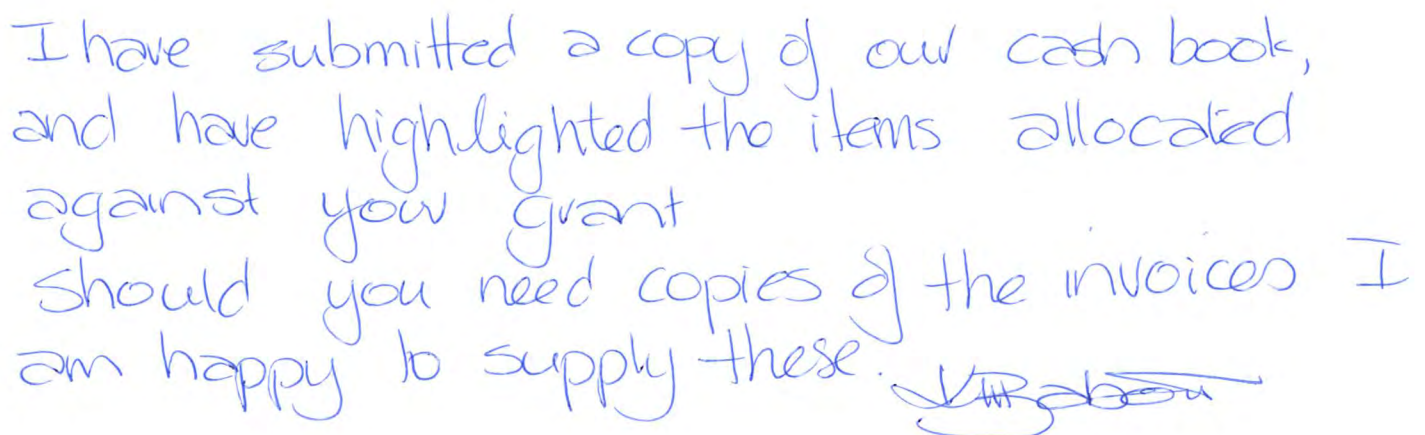 I have submitted a copy of our cash book,
and have highlighted the items allocated
against your grant
should you need copies of the invoices I
am happy to supply these.